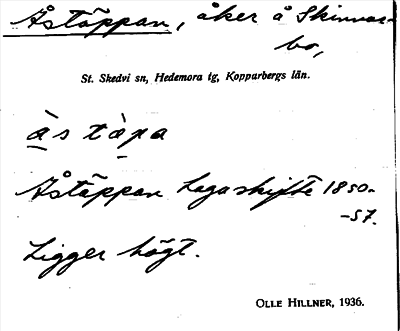 Åstäppan, åker å Skinnars-
bo,
St. Skedvi sn, Hedemora tg, Kopparbergs län.
às tàpa
Åstäppan Lagaskifte 1850-
-57.
Ligger högt.
OLLE HILLNER, 1936.